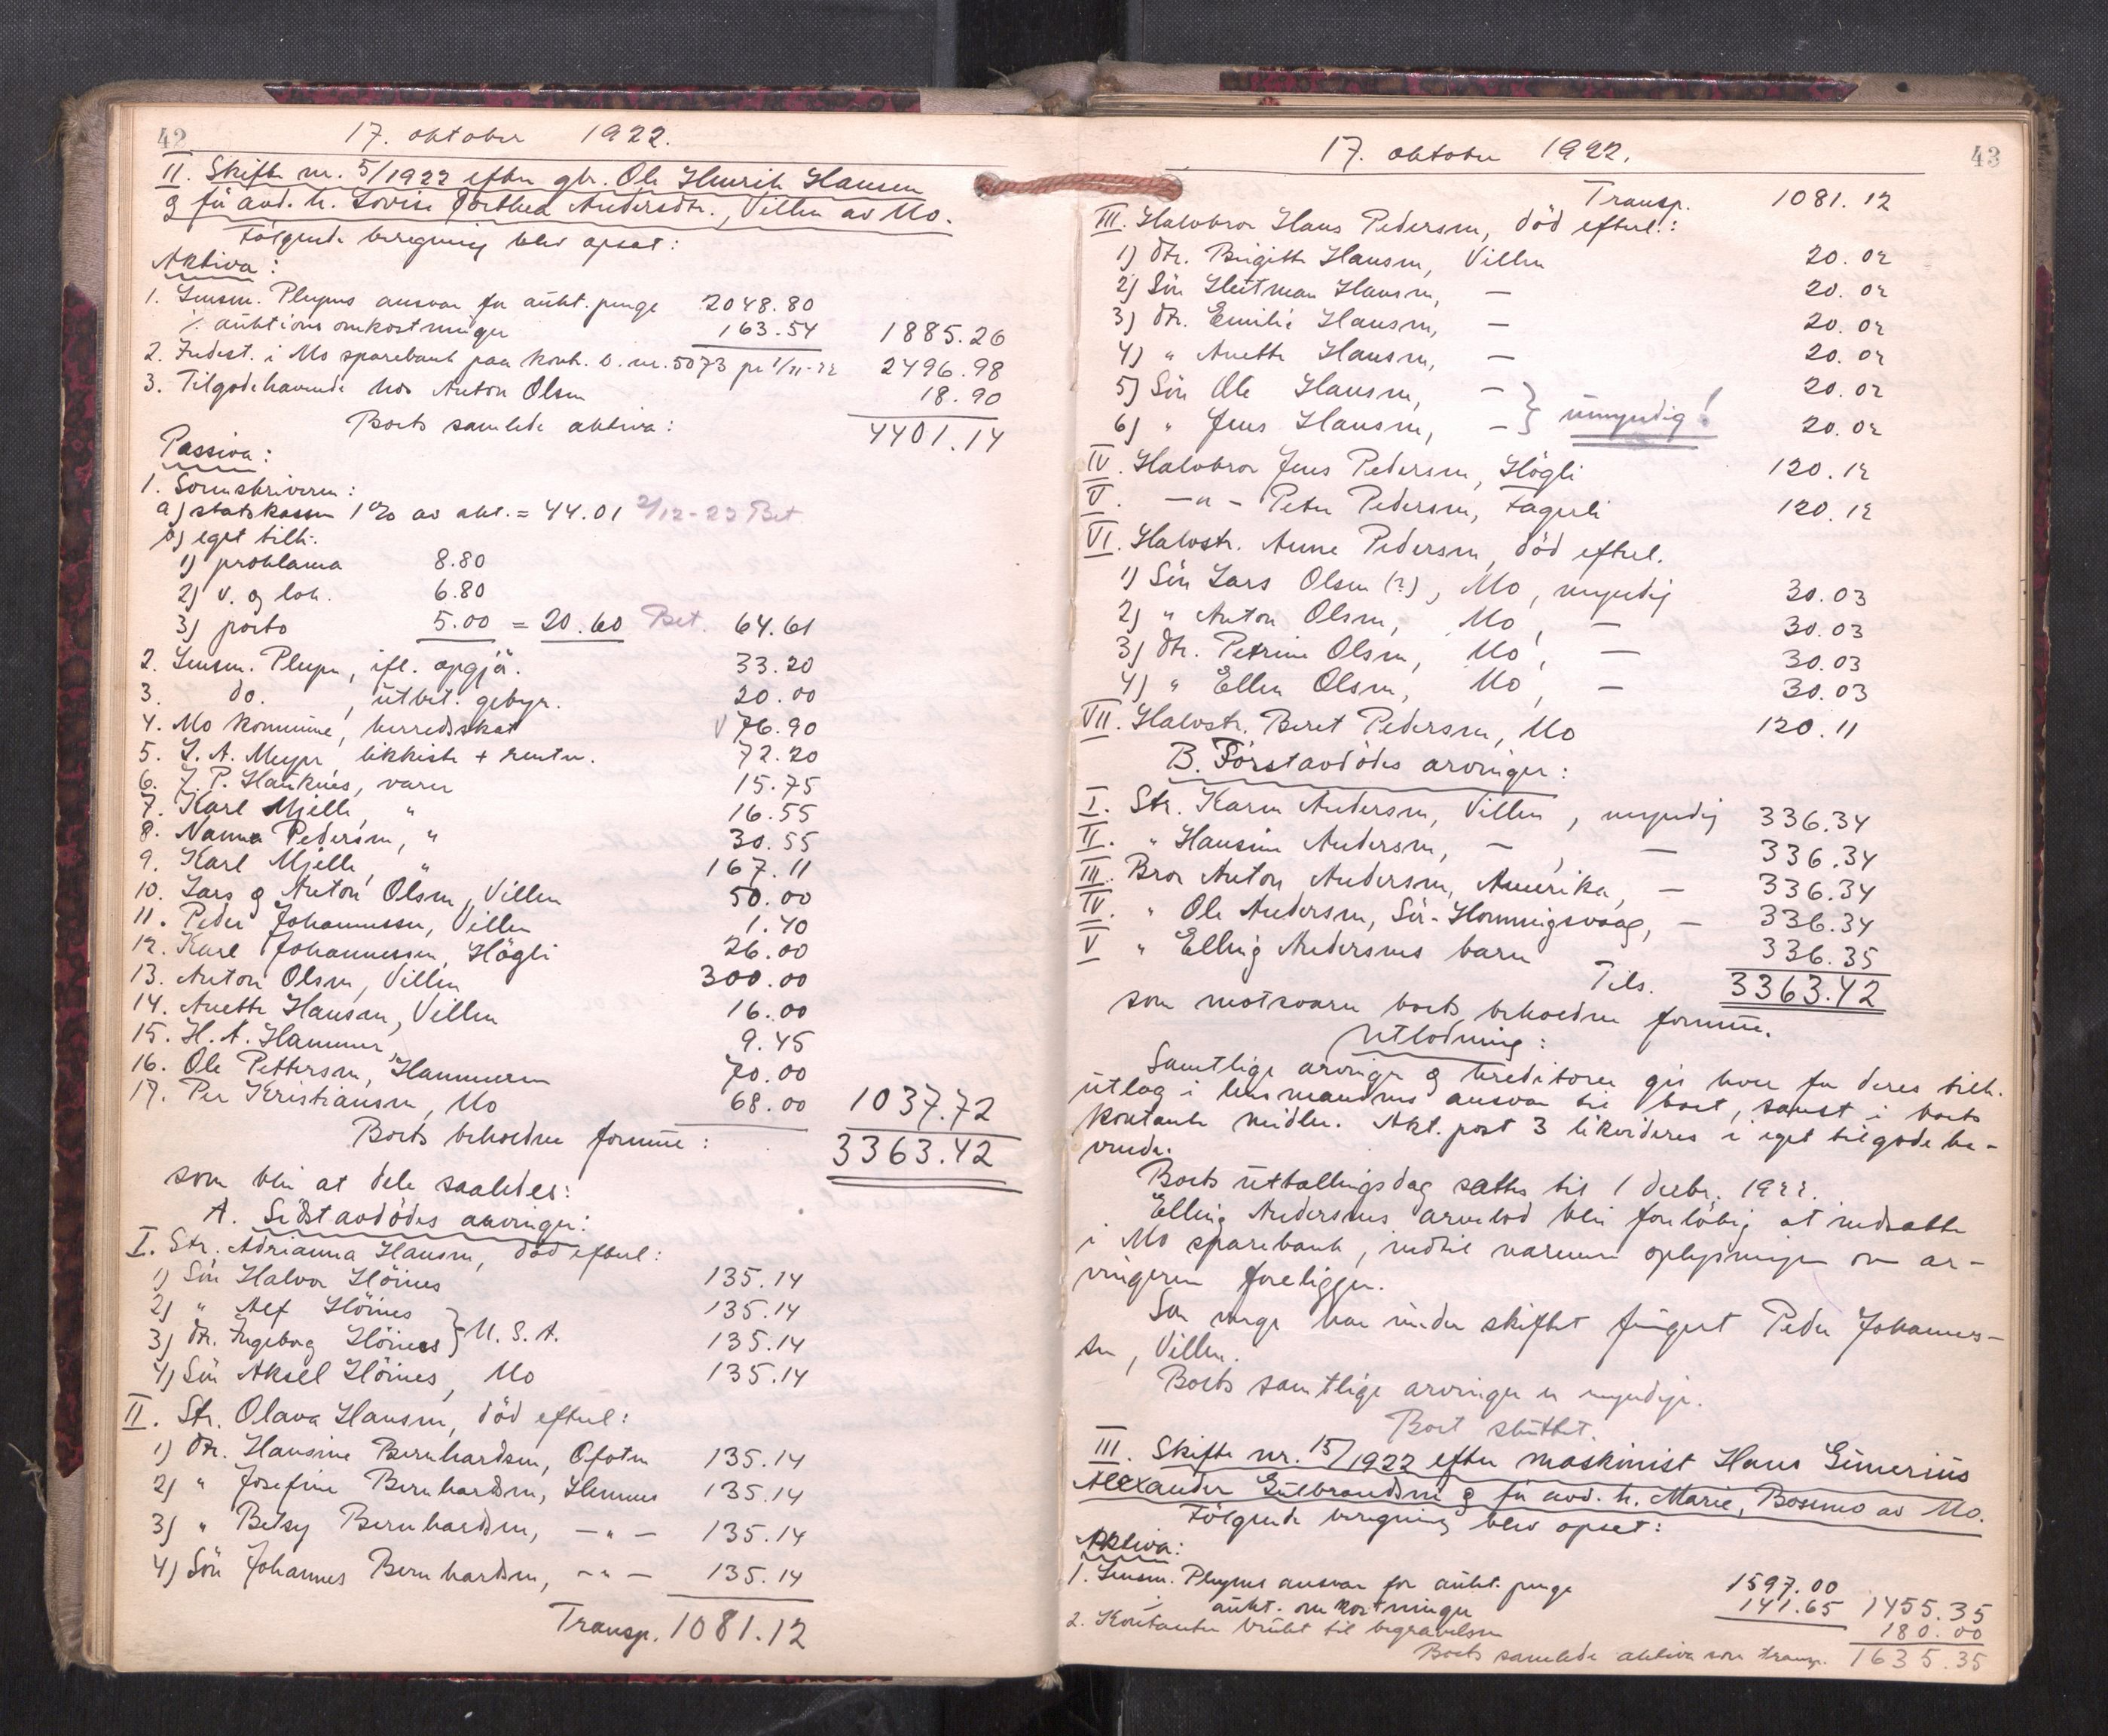 42
17. oktober 1922.
II. Skifte nr. 5/1922 efter gbr. Ole Henrik Hansen
g før avd. h. Lovise Dorthea Andersdtr., Villen av Mo.
Følgende beregning blev opsat:
Aktiva:
1. Lensm. Plyms ansvar for aukt. penge 2048.80
÷ auktions omkostninger 163.54 1885.26
2. Indest. i Mo sparebank paa konto. nr. 5073 pr 1/11-22 2496.98
3. Tilgodehavende hos Anton Olsen 18.90
Boets samlede aktiva: 4401.14
Passiva:
1. Sorenskriveren:
a) statskassen 1% av akt. = 44.01 2/12-22 Bet.
b) eget tilk.
1) proklama 8.80
2) v. og lok. 6.80
3) porto 5.00 = 20.60 Bet. 64.61
2. Lensm. , ifl. opgjø. 33.20
3. do. , utbet. gebyr. 20.00
4. Mo kommune, herredsskat V 76.90
5. L. A. Meyer, likkiste + renter. 72.20
6. J. P. Hauknes, varer 15.75
7. Karl Mjelle, " 16.55
8. Nanna Pedersen, " 30.55
9. Karl Mjelle, " 167.11
10. Lars g Anton Olsen, Villen 50.00
11. Peder Johannessen, Villen 1.40
12. Karl Johannessen, Högli 26.00
13. Anton Olsen, Villen 300.00
14. Anette Hansen, Villen 16.00
15. H. A. Hammer 9.45
16. Ole Pettersen, Hammeren 70.00
17. Per Kristiansen, Mo 68.00 1037.72
Boets beholdne formue: 3363.42
som blir at dele saaledes:
A. Sidstavdödes arvinger:
I. Str. Adrianna Hansen, död efterl:
1) Sön Halvor Höines 135.14
2) " Alf Höines 135.14
3) Dtr. Ingeborg Höines } U.S.A. 135.14
4) Sön Aksel Höines, Mo 135.14
II. Str. Olava Hansen, död efterl:
1) Dtr. Hansine Bernhardsen, Ofoten 135.14
2) " Josefine Bernhardsen, Hemnes 135.14
3) " Betsy Bernhardsen, — " — 135.14
4) Sön Johannes Bernhardsen, — " — 135.14
Transp. 1081.12
43
17. oktober 1922.
Transp. 1081.12
III. Halvbror Hans Pedersen, död efterl.:
1) Dtr. Birgitte Hansen, Villen 20.02
2) Sön Heitman Hansen, — 20.02
3) Dtr. Emilie Hansen, — 20.02
4) " Anette Hansen, — 20.02
5) Sön Ole Hansen, — 20.02
6) " Jens Hansen, — } umyndig! 20.02
IV. Halvbror Jens Pedersen, Högli 120.12
V. —"— Peter Pedersen, Fagerli 120.12
VI. Halvstr. Anne Pedersen, död efterl.
1) Sön Lars Olsen (?), Mo, myndig 30.03
2) " Anton Olsen, Mo, — 30.03
3) Dtr. Petrine Olsen, Mo, — 30.03
4) " Ellen Olsen, Mo, — 30.03
VII. Halvstr. Beret Pedersen, Mo 120.11
B. Förstavdödes arvinger:
I. Str. Karen Andersen, Villen, myndig 336.34
II. " Hansine Andersen, —, — 336.34
III. Bror Anton Andersen, Amerika, — 336.34
IV. " Ole Andersen, Sör-Honningsvaag, — 336.34
V " Elling Andersens barn 336.35
Tils. 3363.42
som motsvarer boets beholdne formue.
Utlodning:
Samtlige arvinger g kreditorer gis hver for deres tilk.
utlæg i lensmandens ansvar til boet, samt i boets
kontante midler. Akt. post 3 likvideres i eget tilgodeha-
vende.
Boets utbetalingsdag sattes til 1 decbr. 1922.
Elling Andersens arvelod blir foreløbig at indsætte
i Mo sparebank, indtil nærmere oplysninger om ar-
vingerne foreligger.
Som verge har under skiftet fungert Peder Johannes-
sen, Villen.
Boets samtlige arvinger er myndige.
Boet sluttet.
III. Skifte nr. 15/1922 efter maskinist Hans Gunerius
Alexander Gulbrandsen g før avd. h. Marie, Bosmo av Mo.
Følgende beregning blev opsat:
Aktiva:
1. Lensm. Plyms ansvar for aukt. penge 1597.00
÷ aukt. omkostninger 141.65 1455.35
2. Kontanter brukt til begravelsen 180.00
Boets samlede aktiva som transp. 1635.35